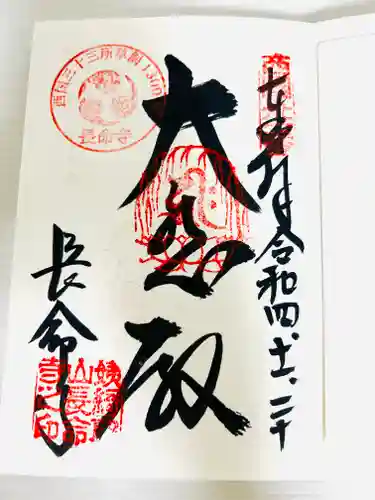 奉拝 令和四、十二、二十
大悲殿
長命寺
西国三十三所草創1300年
長命寺
姨綺耶山長命寺之印